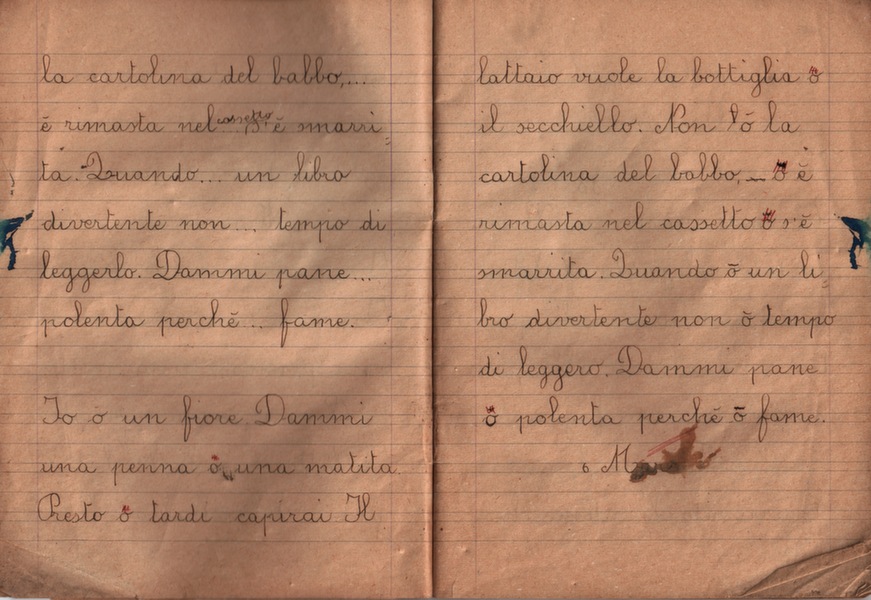 la cartolina del babbo,...
è rimasta nel cassetto s'è smarri
ta. Quando... un libro
divertente non.... tempo di
leggerlo. Dammi pane...
polenta perchè... fame.
Io ō un fiore. Dammi
una penna ō una matita.
Presto ō tardi capirai Il
lattaio vuole la bottiglia ō
il secchiello. Non l'ō la
cartolina del babbo, ō è
rimasta nel cassetto ō s'è
smarrita. Quando ō un li
bro divertente non ō tempo
di leggero. Dammi pane
ō polenta perchè ō fame.
6